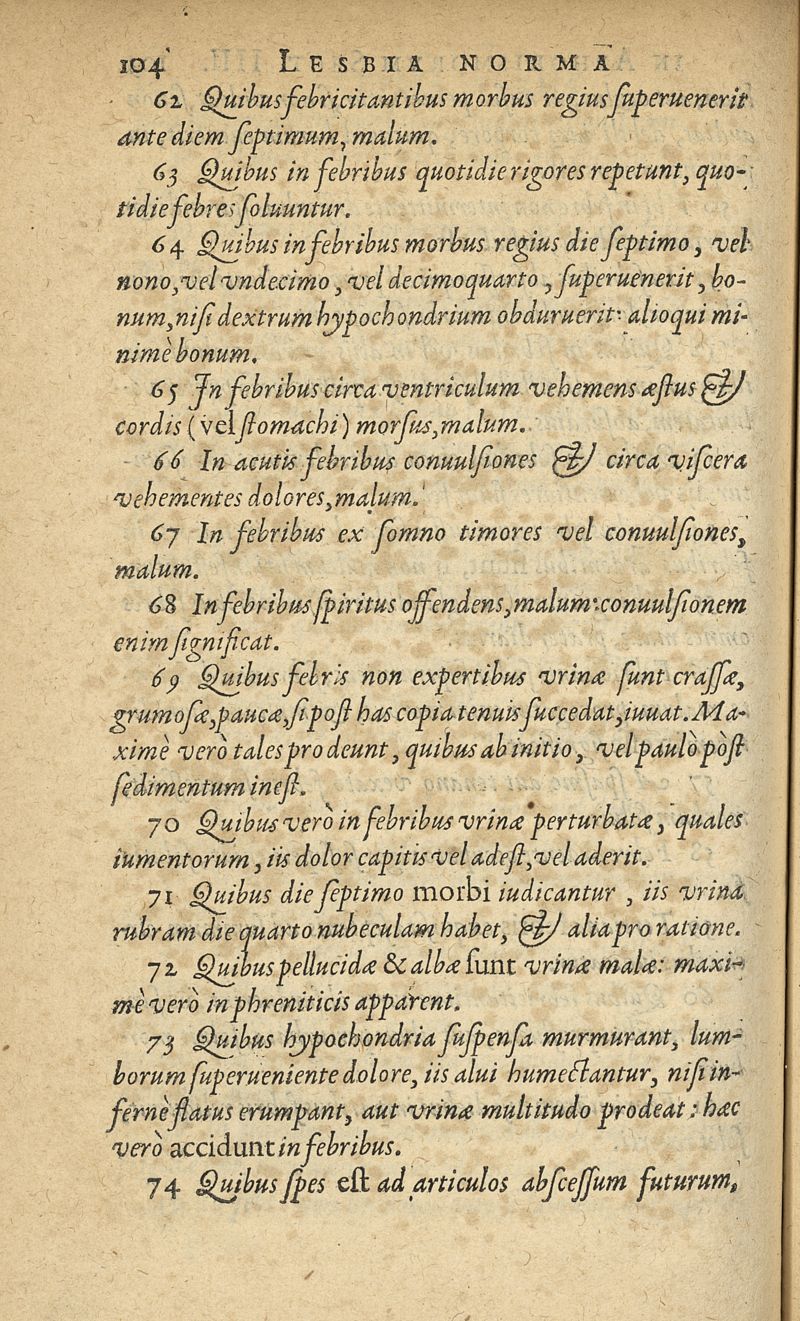 104 LESBIA NORMA
62 Quibus febricitantibus morbus regius ſuperuenerit
ante diem ſeptimum, malum.
63 Quibus in febribus quotidie rigores repetunt, quo-
tidie febres ſoluuntur.
64 Quibus in febribus morbus regius die ſeptimo, vel
nono, vel vndecimo, vel decimoquarto, ſuperuenerit, bo-
num, niſi dextrum hypochondrium obduruerit: alioqui mi-
nimè bonum.
65 In febribus circa ventriculum vehemens æſtus &
cordis (vel ſtomachi) morſus, malum.
66 In acutis febribus conuulſiones & circa viſcera
vehementes dolores, malum.
67 In febribus ex ſomno timores vel conuulſiones,
malum.
68 In febribus ſpiritus offendens, malum: conuulſionem
enim ſignificat.
69 Quibus febris non expertibus vrinæ ſunt craſſæ,
grumoſæ, paucæ, ſi poſt has copia tenuis ſuccedat, iuuat. Ma-
ximè verò tales prodeunt, quibus ab initio, vel paulò pòſt
ſedimentum ineſt.
70 Quibus verò in febribus vrinæ perturbatæ, quales
iumentorum, iis dolor capitis vel adeſt, vel aderit.
71 Quibus die ſeptimo morbi iudicantur, iis vrina
rubram die quarto nubeculam habet, & alia pro ratione.
72 Quibus pellucidæ & albæ ſunt vrinæ malæ: maxi-
mè verò in phreniticis apparent.
73 Quibus hypochondria ſuſpenſa murmurant, lum-
borum ſuperueniente dolore, iis alui humectantur, niſi in-
fernè flatus erumpant, aut vrinæ multitudo prodeat: hæc
verò accidunt in febribus.
74 Quibus ſpes eſt ad articulos abſceſſum futurum,